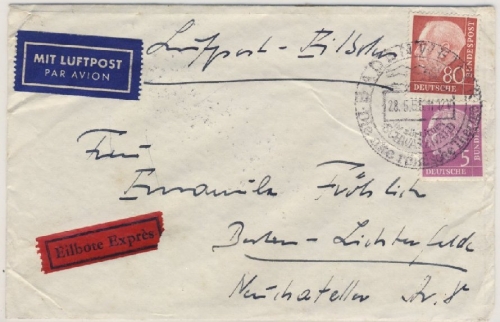 MIT LUFTPOST
PAR AVION
Luftpost-Eilbote
80
DEUTSCHE BUNDESPOST
BAD STEBEN
28.6.
5
DEUTSCHE BUNDESPOST
Frau
Emanuela Fröhlich
Berlin-Lichterfelde
Eilbote Exprès
Neuchateller Str. 8